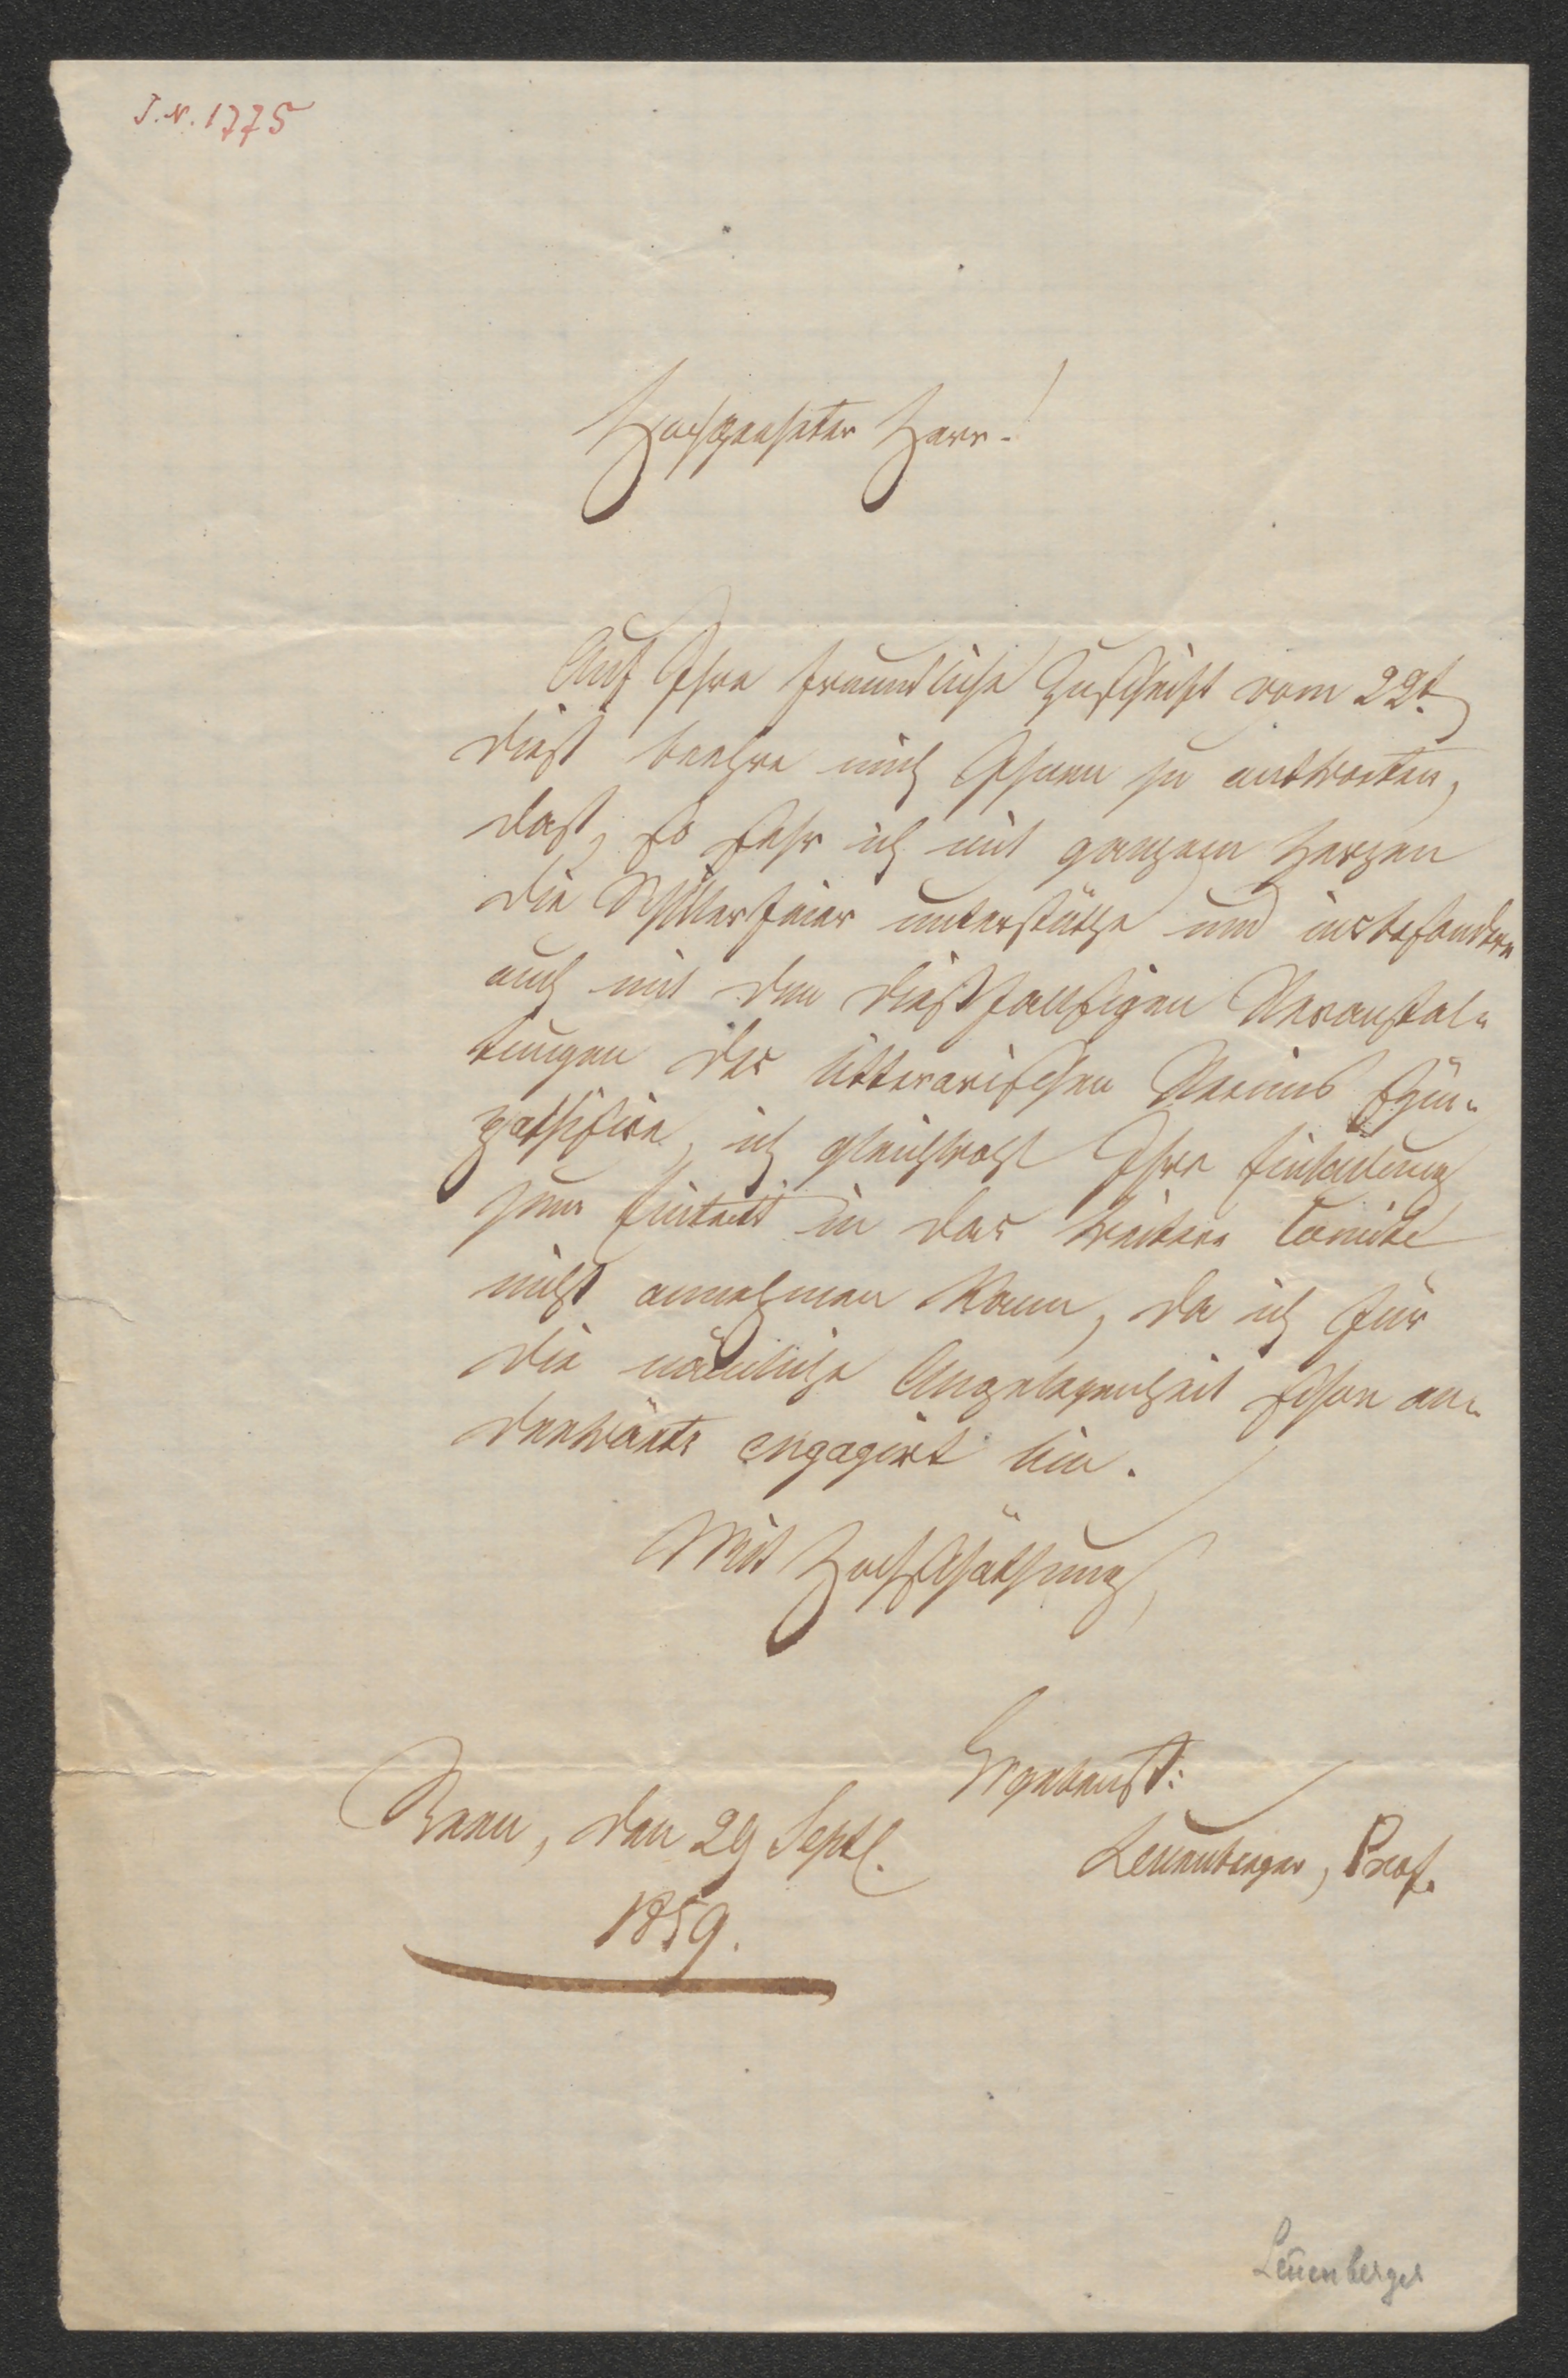 J.N. 1775
Hochgeehrter Herr!
Auf Ihre freundliche Zuschrift vom 22t.
dieß beehre mich Ihnen zu antworten,
daß, so sehr ich mit ganzem Herzen
die Schillerfeier unterstütze und insbesondere
auch mit den dießfallsigen Veranstal-
tungen des litterarischen Vereins sym-
pathisire, ich gleichwohl Ihre Einladung
zum Eintritt in das weitere Comité
nicht annehmen kann, da ich für
die nämliche Angelegenheit schon an-
derwärts engagirt bin.
Mit Hochschätzung,
Ergebenst:
Bern, den 29 Septb.
Leuenberger, Prof.
1859.
Leuenberger